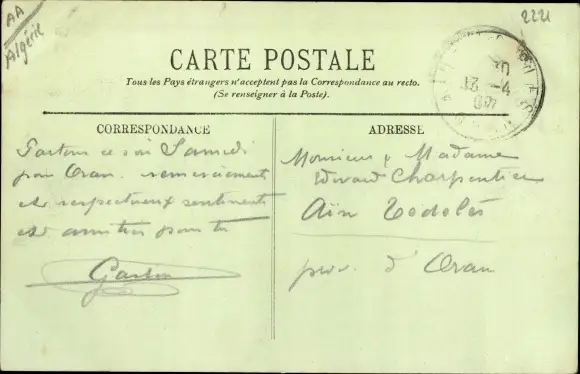 AA
Algérie
2221
CARTE POSTALE
Tous les Pays étrangers n'acceptent pas la Correspondance au recto.
(Se renseigner à la Poste).
CORRESPONDANCE
Partons ce soir Samedi
pour Oran. remerciements
et respectueux sentiments
et amitiés pour tt
Gaston
ADRESSE
Monsieur & Madame
Edouard Charpentier
Aïn Tedelès
prov. d'Oran
13 -4